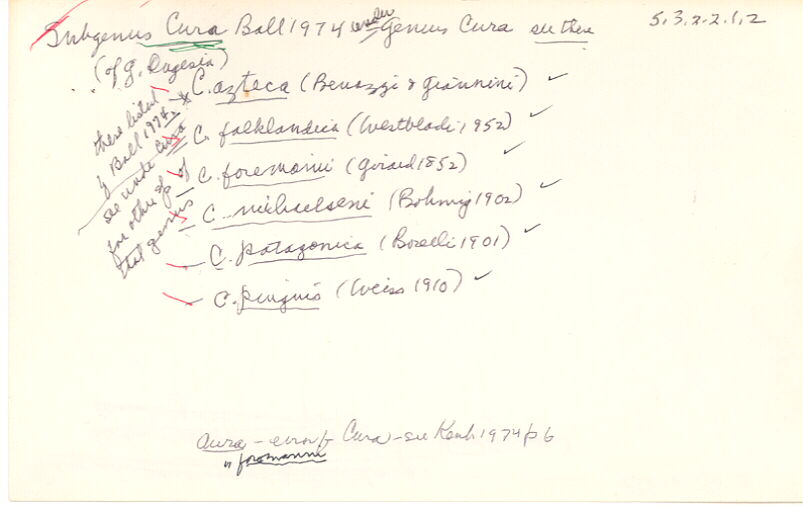 Subgenus Cura Ball 1974 under Genus Cura see there 5.3.2.2.1.2
(of g. Dugesia)
C. azteca (Benazzi & Giannini) ✓
C. falklandica (Westblad 1952) ✓
C. foremanii (Girard 1852) ✓
C. michaelseni (Bohmig 1902) ✓
C. patagonica (Borelli 1901) ✓
C. pinguis (Weiss 1910) ✓
these listed
by Ball 1974
see under Cura
for other spp of
that genus
Aura - error for Cura - see Kenk 1974 p6
" foremanni